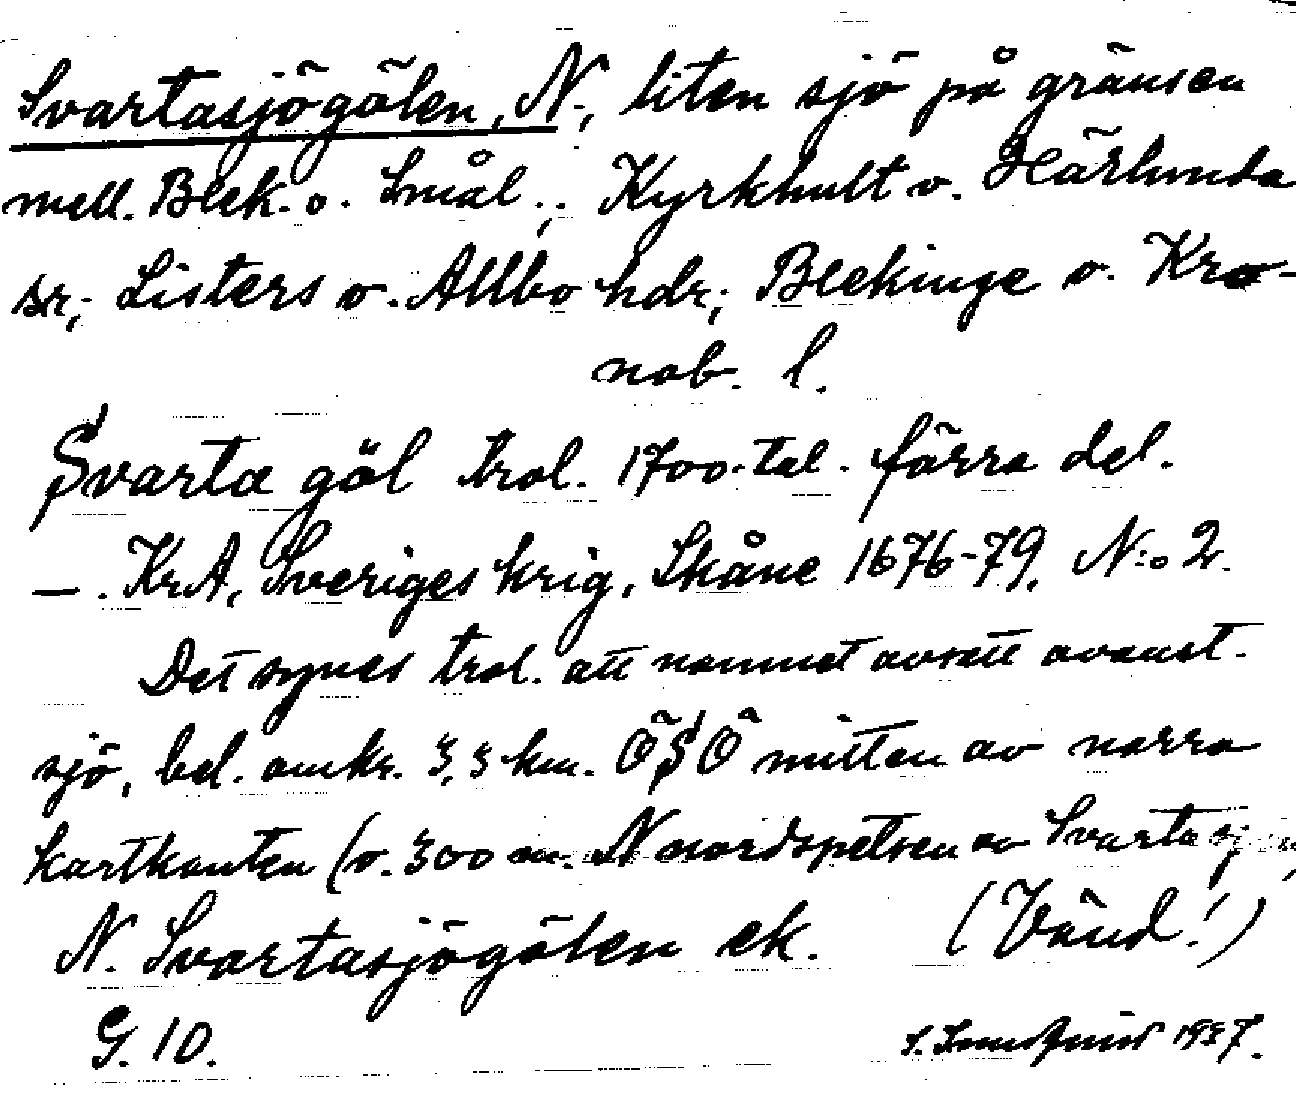 Svartasjögölen, N., liten sjö på gränsen
mell. Blek. o. Smål.; Kyrkhult o. Härlunda
sr; Listers o. Allbo hdr; Blekinge o. Kro-
nob. l.
Svarta göl trol. 1700-tal. förra del.
—. KrA, Sveriges krig, Skåne 1676-79, N:o 2.
Det synes trol. att namnet avsett avanst.
sjö, bel. omkr. 3,3 km. ÖSÖ mitten av norra
kartkanten (o. 300 m. N nordspetsen av Svarta sjön,
N. Svartasjögölen ek. (Vänd!)
G. 10. 1937.